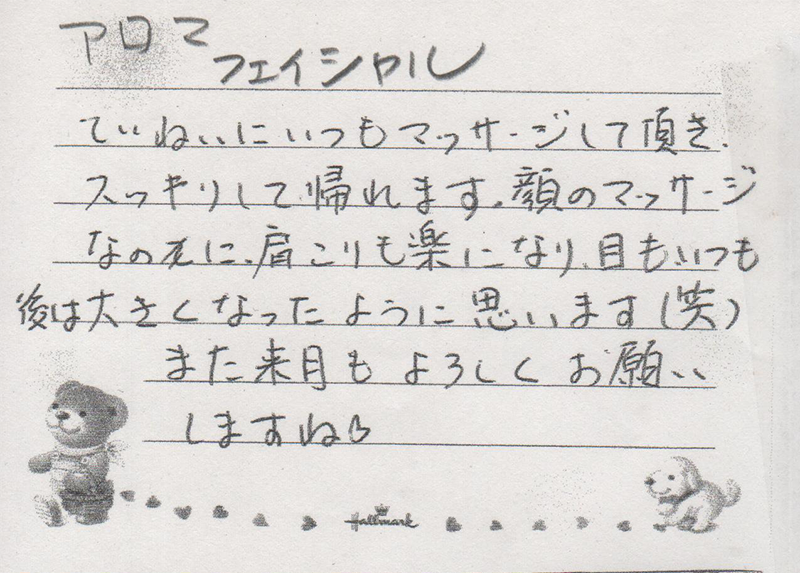 アロマ
フェイシャル
ていねいにいつもマッサージして頂き、
スッキリして帰れます。顔のマッサージ
なのに、肩こりも楽になり、目もいつも
後は大きくなったように思います(笑)
また来月もよろしくお願い
しますね
Hallmark